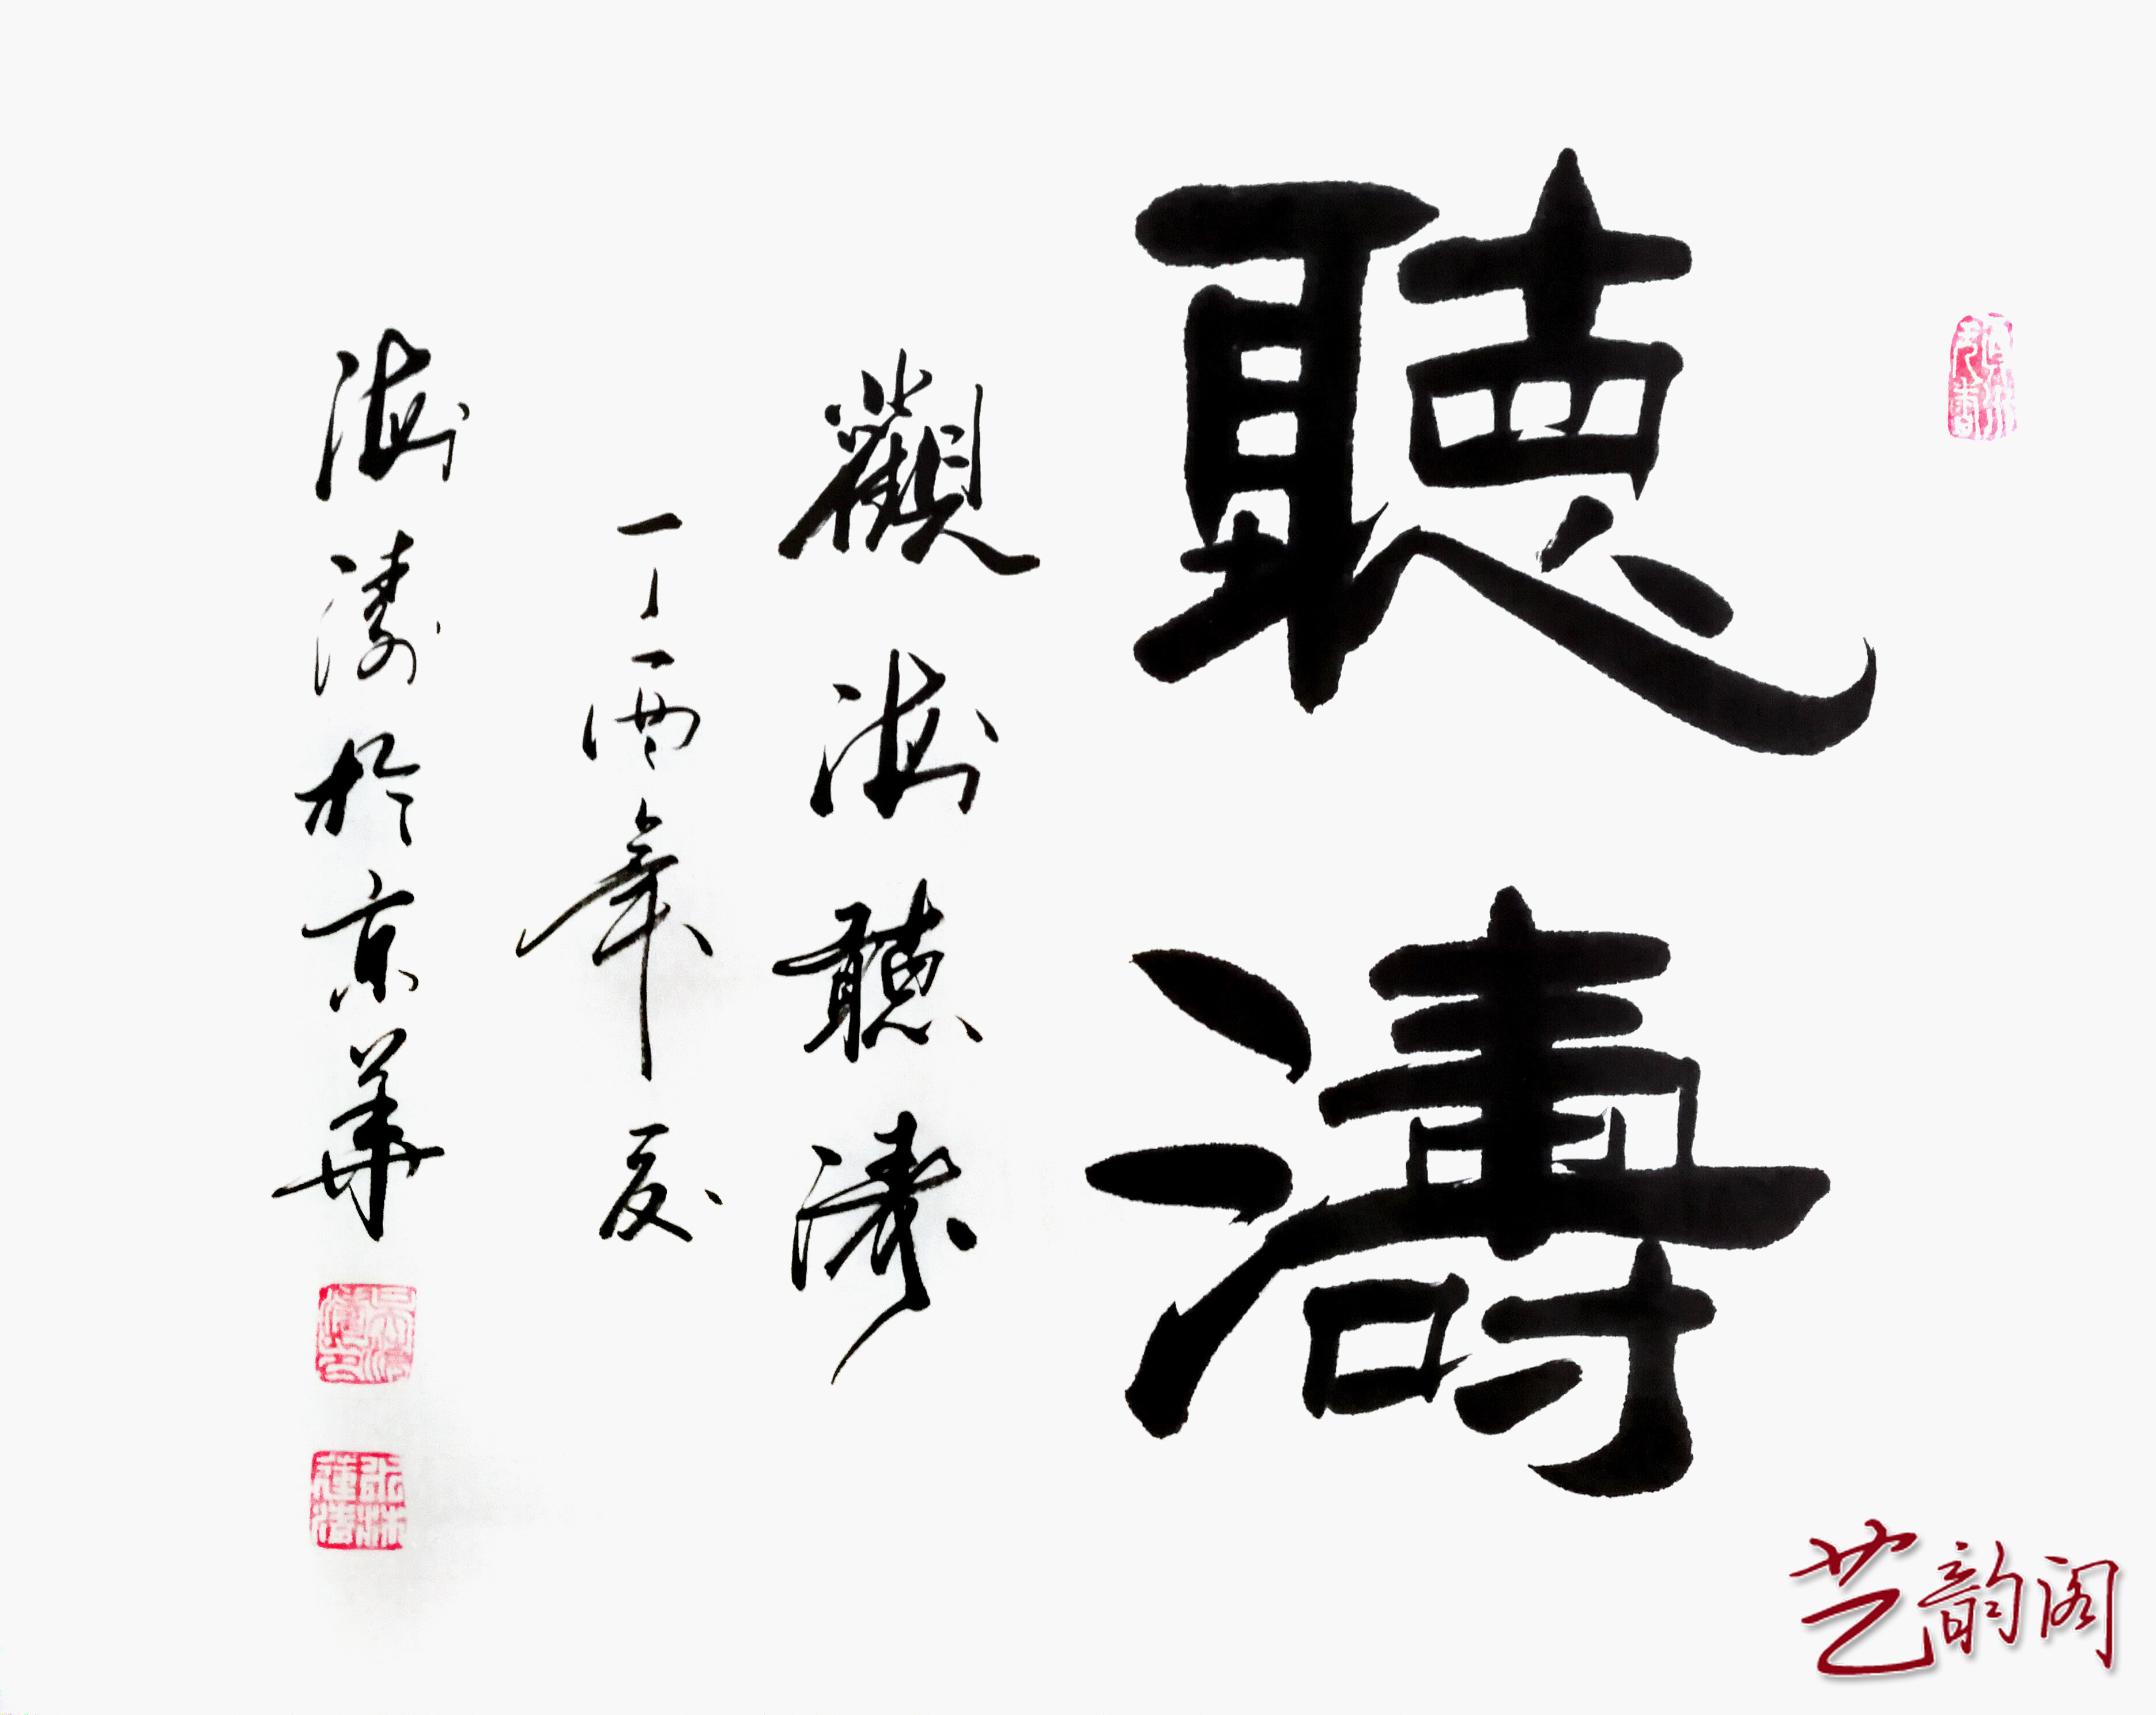 聽濤
觀海聽濤
丁酉年夏
海濤於京華
艺韵阁